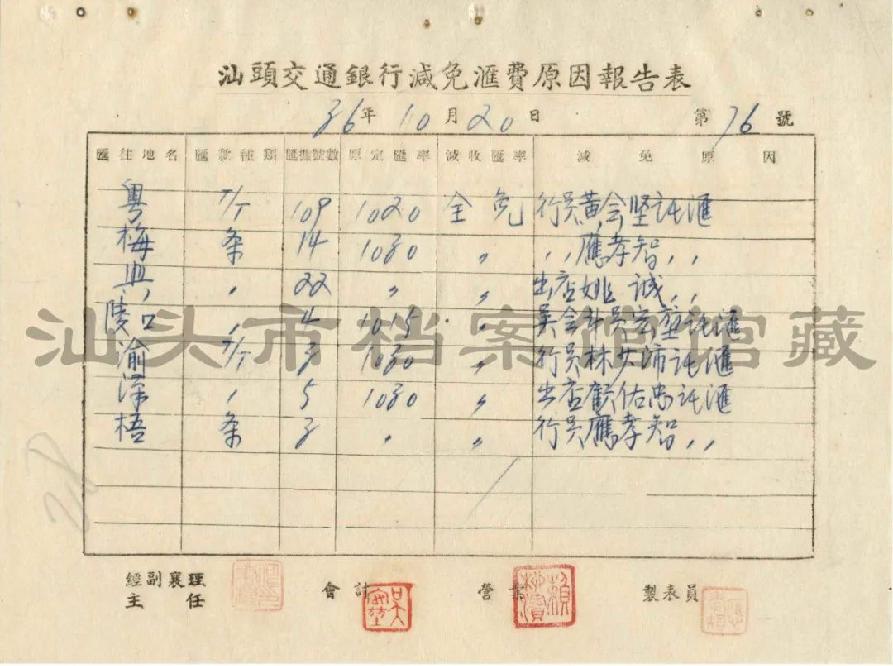 汕頭交通銀行減免滙費原因報告表
36年10月20日 第76號
匯往地名 匯款種類 匯據號數 原定匯率 減收匯率 減免原因
粵 T/T 109 1020 全免 行員黃会堅託滙
梅 条 14 1030 〃 〃應孝智〃
興 〃 22 〃 〃 出店姚誠〃
4 1015 〃 託滙
渝 T/T 3 1030 〃 行員林 託滙
〃 5 1030 〃 出店顧佑忠託滙
梧 条 3 〃 〃 行員應孝智〃
汕头市档案馆馆藏
經副襄理
主任
會計
營業
製表員
28